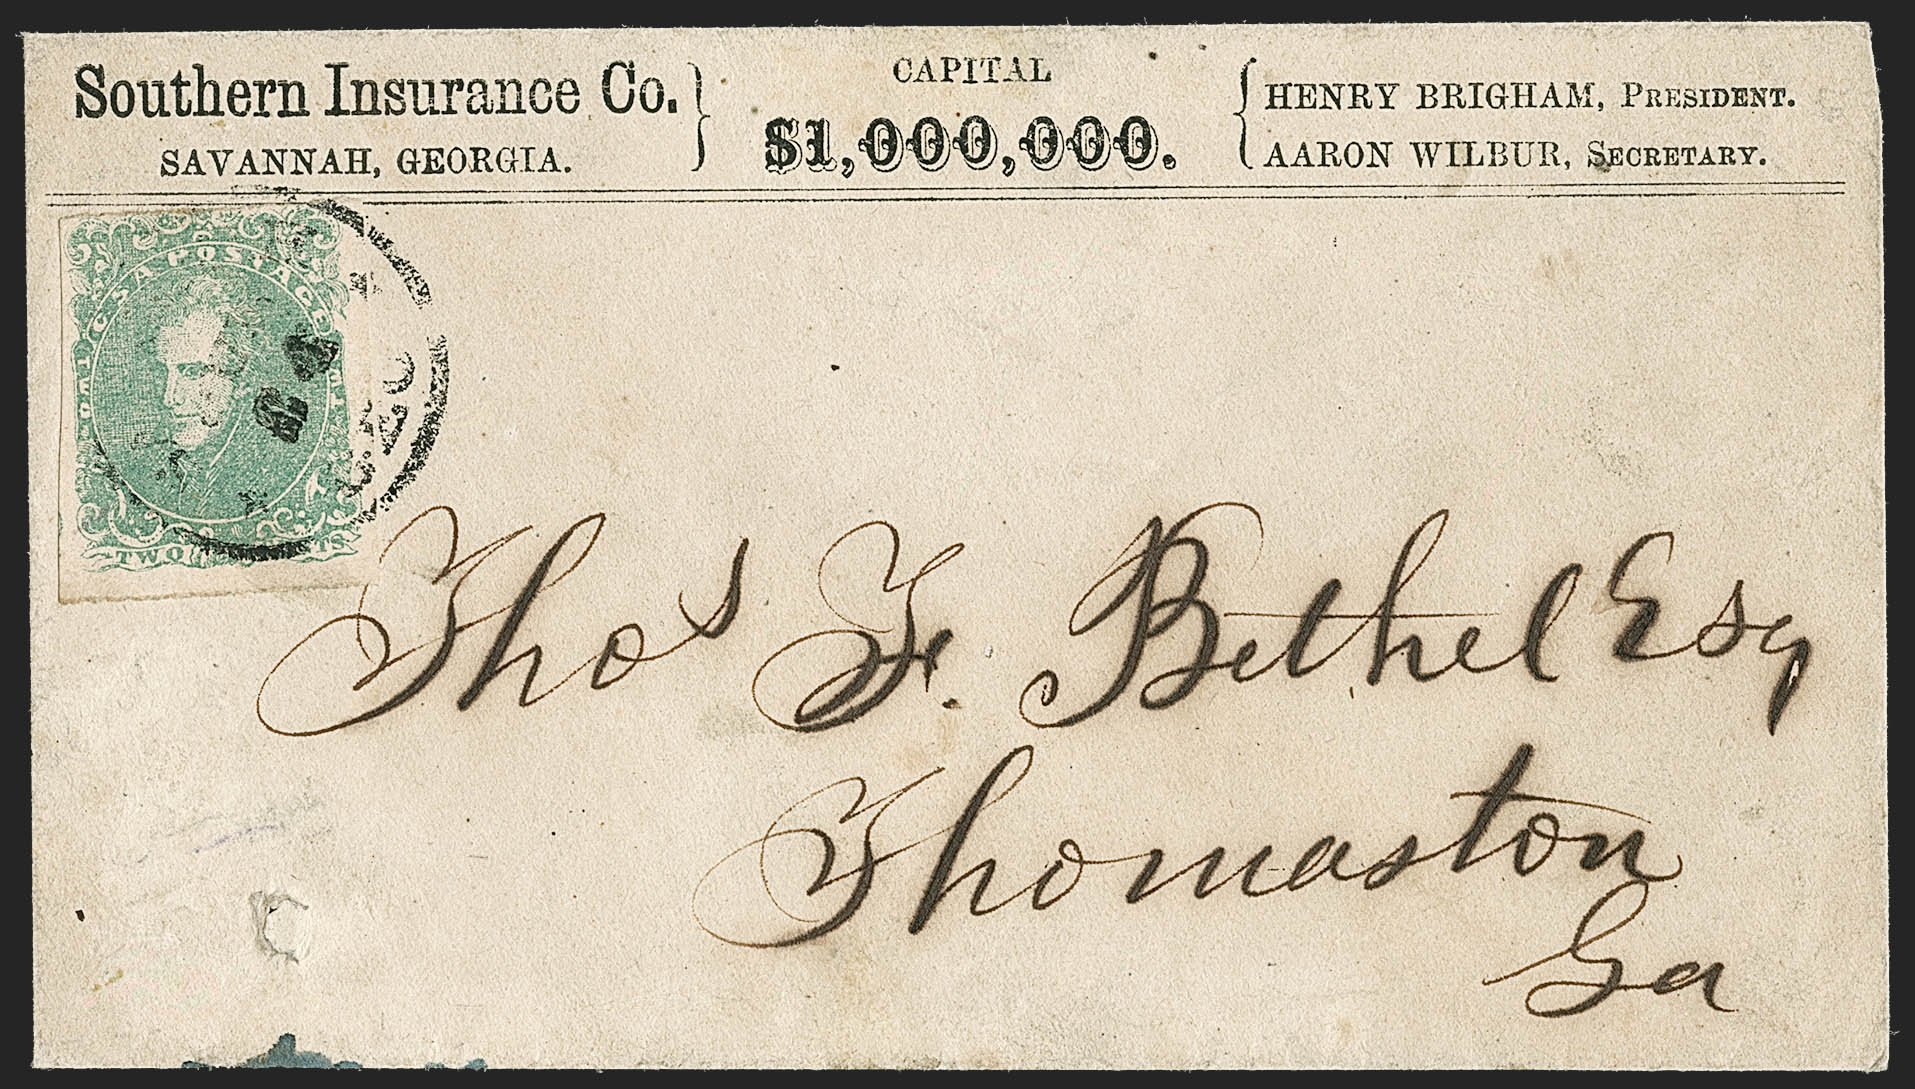 Southern Insurance Co.
SAVANNAH, GEORGIA.
CAPITAL
$1,000,000.
HENRY BRIGHAM, PRESIDENT.
AARON WILBUR, SECRETARY.
C S A POSTAGE
TWO
Thos F. Bethel Esq
Thomaston
Ga